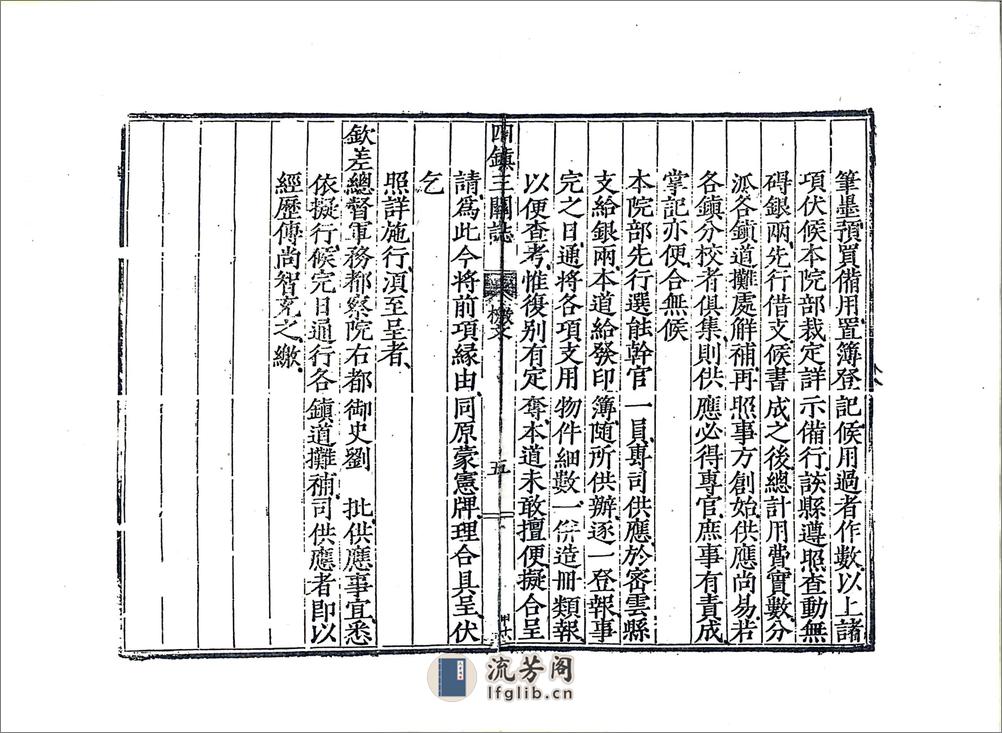 筆墨預買備用置簿登記候用過者作數以上諸
項伏候本院部裁定詳示備行該縣遵照查動無
碍銀兩先行借支候書成之後總計用費實數分
派各鎮道攤處解補再照事方創始供應尚易若
各鎮分校者俱集則供應必得專官庶事有責成
掌記亦便合無候
本院部先行選蝕幹官一員專司供應於密雲縣
支給銀兩本道給發印簿隨所供辦逐一登報事
完之日通將各項支用物件細數一併造冊類報
以便查考惟復别有定奪本道未敢擅便擬合呈
四鎮三關誌 檄文 五
請爲此今將前項緣由同原蒙憲牌理合具呈伏
乞
照詳施行湏至呈者
欽差總督軍務都察院右都御史劉 批供應事宜悉
依擬行候完日通行各鎮道攤補司供應者即以
經歷傅尚智充之繳
流芳阁
lfglib.cn